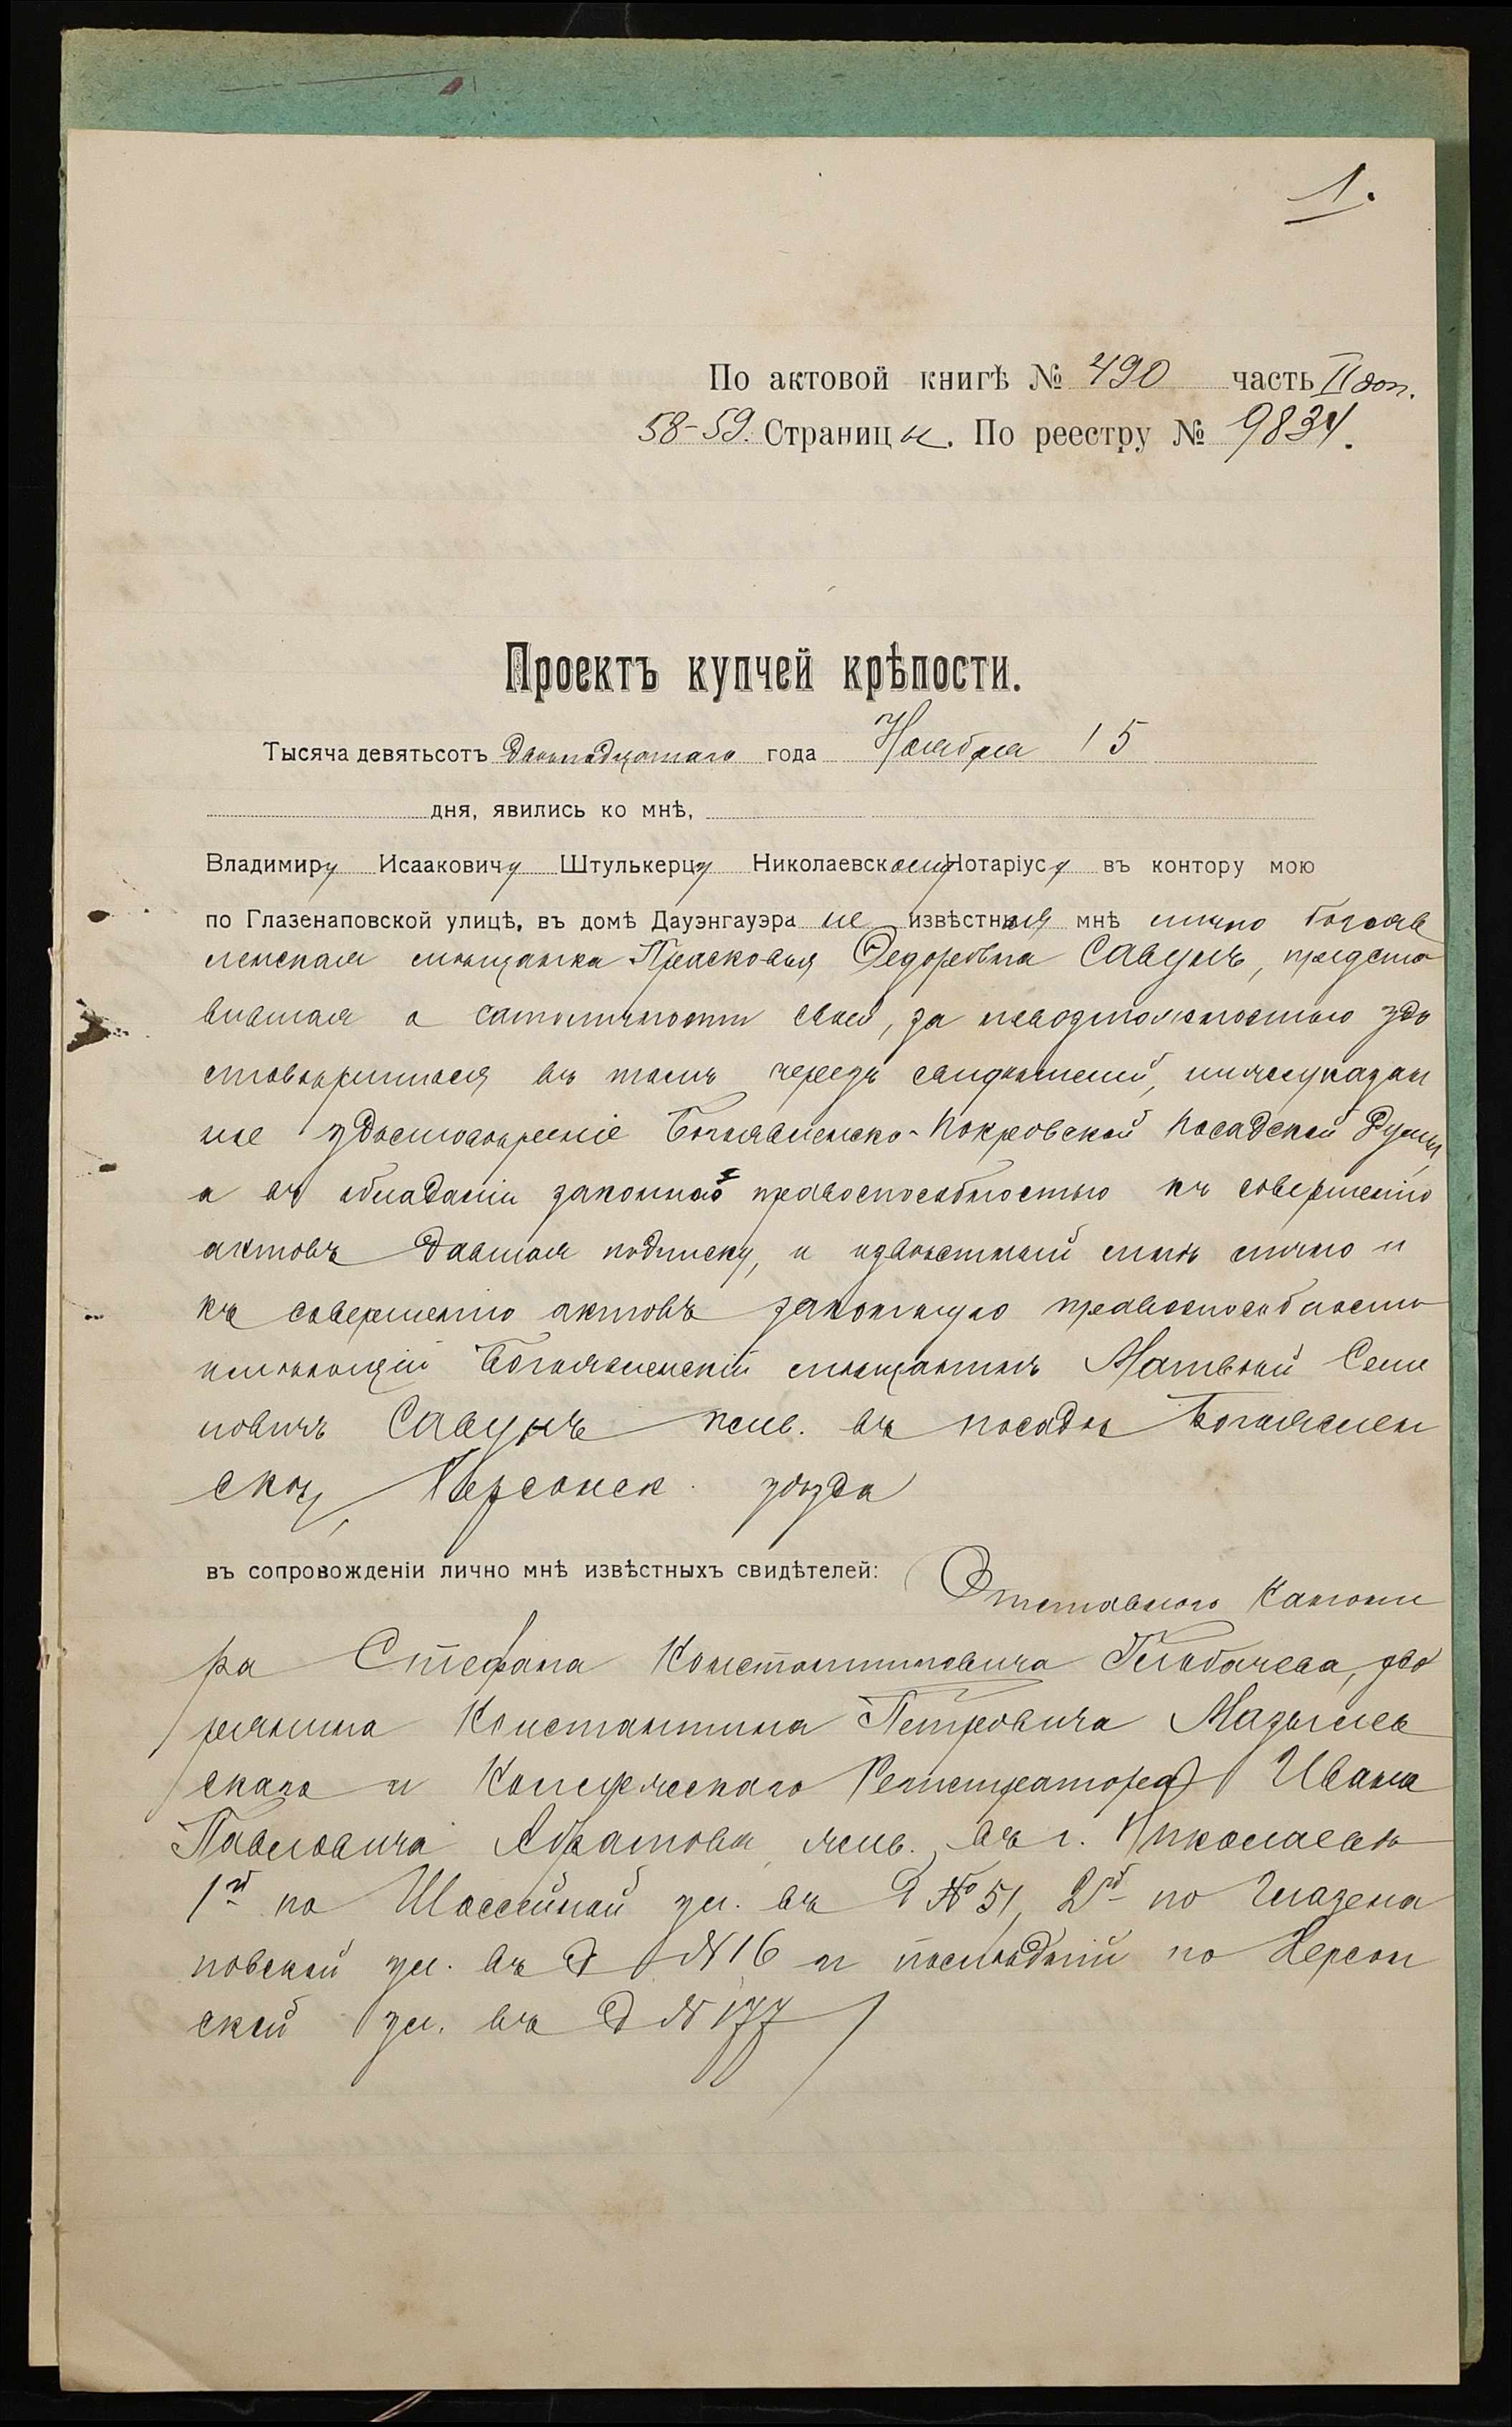 1.
По актовой книгѣ № 490 часть II доп.
58-59. Страницы. По реестру № 9834.
Проектъ купчей крѣпости.
Тысяча девятьсотъ двѣнадцатаго года Ноября 15
дня, явились ко мнѣ,
Владимиру Исааковичу Штулькерцу Николаевскому Нотаріусу въ контору мою
по Глазенаповской улицѣ, въ домѣ Дауэнгауэра не извѣстная мнѣ лично Богояв
ленская мѣщанка Прасковья Федоровна Савунъ, предста
вившая о самоличности своей, за невозможностью удо
стовѣриться въ томъ черезъ свидѣтелей, нижеуказан
ное удостовѣреніе Богоявленско-Покровской Посадской Думы,
а въ обладаніи законной правоспособностью къ совершенію
актовъ давшая подписку, и извѣстный мнѣ лично и
къ совершенію актовъ законную правоспособность
имѣющій Богоявленскій мѣщанинъ Матвѣй Семе
новичъ Савунъ жив. въ посадѣ Богоявлен
скомъ, Херсонск. уѣзда
въ сопровожденіи лично мнѣ извѣстныхъ свидѣтелей: Отставного Канони
ра Стефана Константиновича Глобачева, дво
рянина Константина Петровича
скаго и Коллежскаго Регистратора Ивана
Павловича жив. въ г. Николаевѣ
1й по Шоссейной ул. въ д № 51, 2й по Глазена
повской ул. въ д № 16 и послѣдній по Херсон
ской ул. въ д № 177